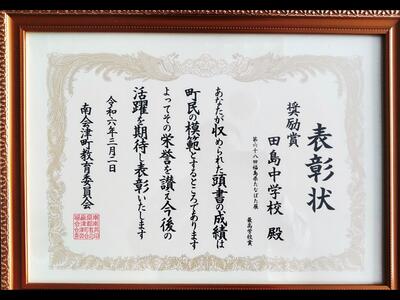 表彰状
奨励賞
田島中学校 殿
第六十八回福島県たなばた展
最高学校賞
あなたが収められた頭書の成績は
町民の模範とするところであります
よってその栄誉を讃え今後の
活躍を期待し表彰いたします
令和六年三月二日
南会津町教育委員会